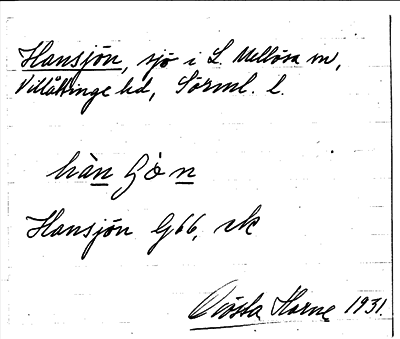 Hansjön, sjö i L. Mellösa sn,
Villåttinge hd, Sörml. l.
hàn
Hansjön G66, rk
Gösta Horne 1931.